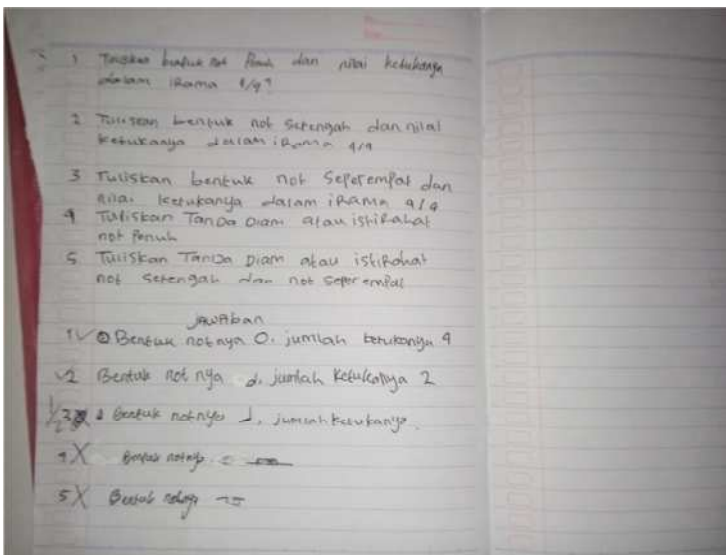 1 Tuliskan bentuk not Penuh dan nilai ketukanya
dalam iRama 4/4?
2 Tuliskan bentuk not setengah dan nilai
ketukanya dalam iRama 4/4
3 Tuliskan bentuk not Seperempat dan
nilai ketukanya dalam iRama 4/4
4 Tuliskan Tanda Diam atau istiRahat
not Penuh
5. Tuliskan Tanda Diam atau istiRahat
not setengah dan not seperempat
JAWAban
1 Bentuk notnya O. jumlah ketukanya 4
2 Bentuk not nya d. jumlah ketukanya 2
1/2 3 Bentuk notnya ♩, jumlah ketukanya.
4 X Bentuk notnya
5 X Bentuk notnya